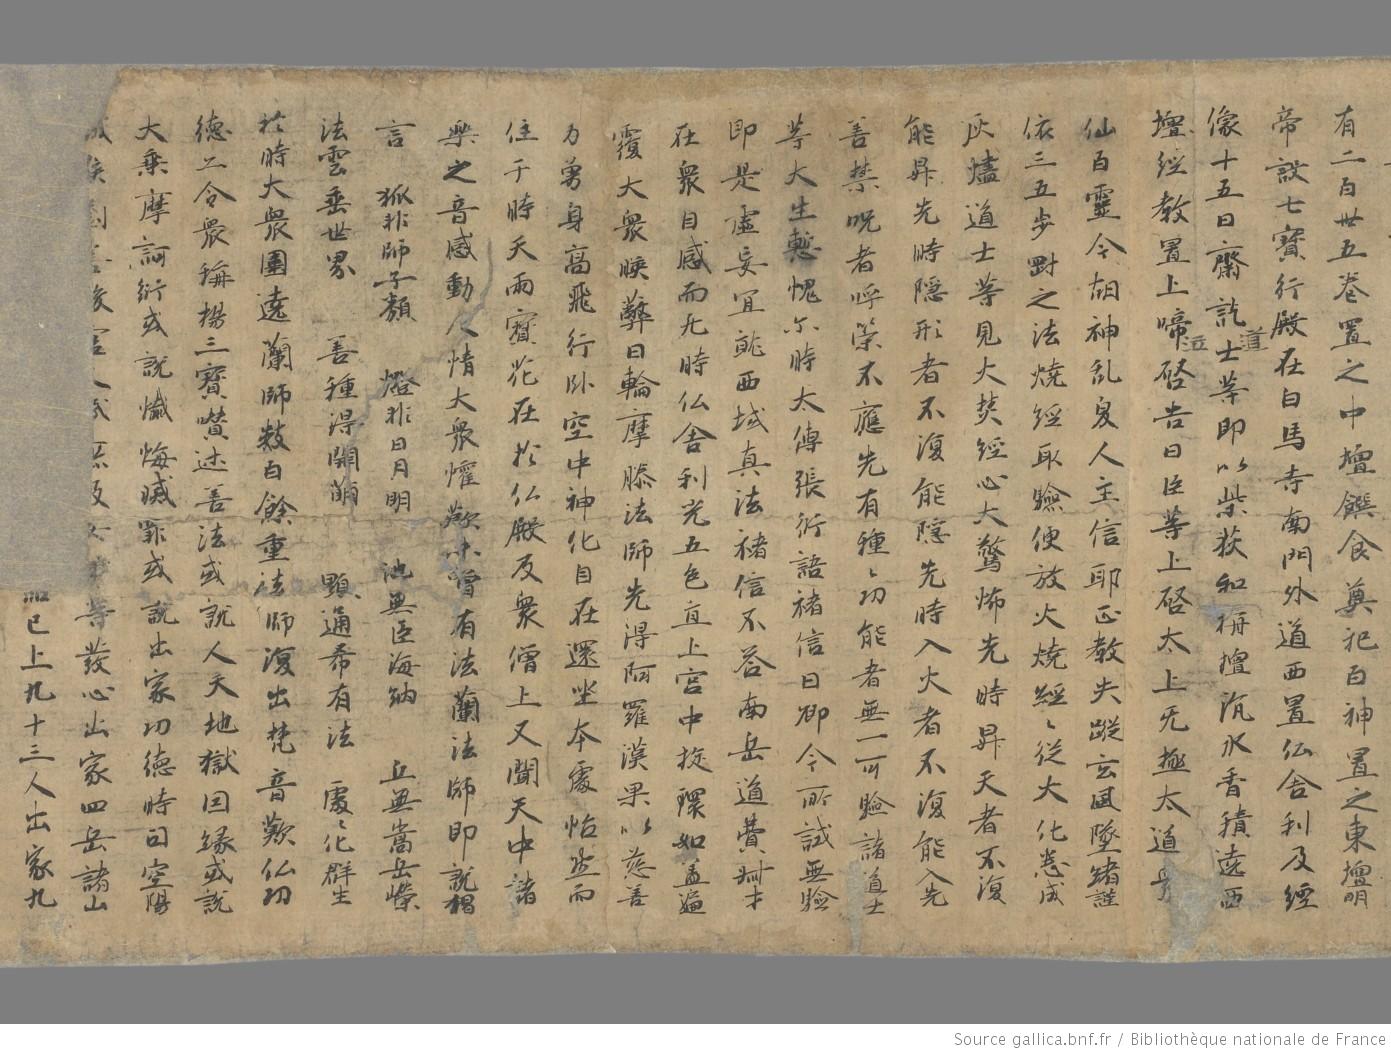 有二百卅五卷置之中壇饌食奠祀百神置之東壇明
帝設七寶行殿在白馬寺南門外道西置仏舍利及經
像十五日齋訖道士等即以柴荻和栴檀沉水香積遶西
壇經教置上啼泣啓告曰臣等上啓太上无極太道
仙百靈今胡神乱夏人主信耶正教失蹤玄風墜緒謹
依三五步罡之法燒經取驗便放火燒經〻從大化悉成
灰燼道士等見火焚經心大驚怖先時昇天者不復
能昇先時隱形者不復能隱先時入火者不復能入先
善禁呪者呼策不應先有種〻功能者無一可驗諸道士
等大生慙愧尒時太傅張衍語褚信曰卿今所試無驗
即是虛妄宜就西域真法褚信不荅南岳道費叔才
在衆自感而死時仏舍利光五色直上空中旋環如盖遍
覆大衆暎蔽日輪摩滕法師先得阿羅漢果以慈善
力勇身高飛行卧空中神化自在還坐本處怡然而
住于時天雨寶花在於仏殿及衆僧上又聞天中諸
樂之音感動人情大衆懽歎未曾有法蘭法師即說褐
言 狐非師子類 燈非日月明 池無臣海納 丘無嵩岳嶸
法雲垂世界 善種得開萠 顯通希有法 處〻化群生
於時大衆圍遶蘭師數百餘重法師復出梵音歎仏功
德亦令衆稱揚三寶嘆述善法或說人天地獄因緣或說
大乘摩訶衍或說懴悔滅罪或說出家功德時司空陽
等發心出家四岳諸山
已上九十三人出家九